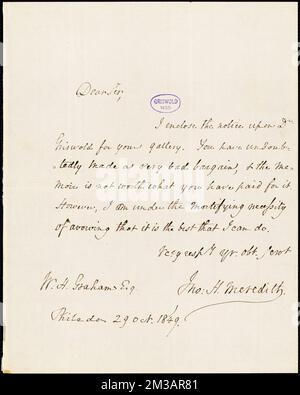 Dear Sir,
GRISWOLD
MSS
I enclose the notice upon Dr
Griswold for your gallery. You have undoub-
-tedly made a very bad bargain, & the me-
moir is not worth what you have paid for it.
However, I am under the mortifying necessity
of avowing that it is the best that I can do.
Very respy yr. obt. servt
Jno. H. Meredith
W. H. Graham Esq
Philadᵃ 29 Oct. 1849.
alamy
Image ID: 2M3AR81
www.alamy.com